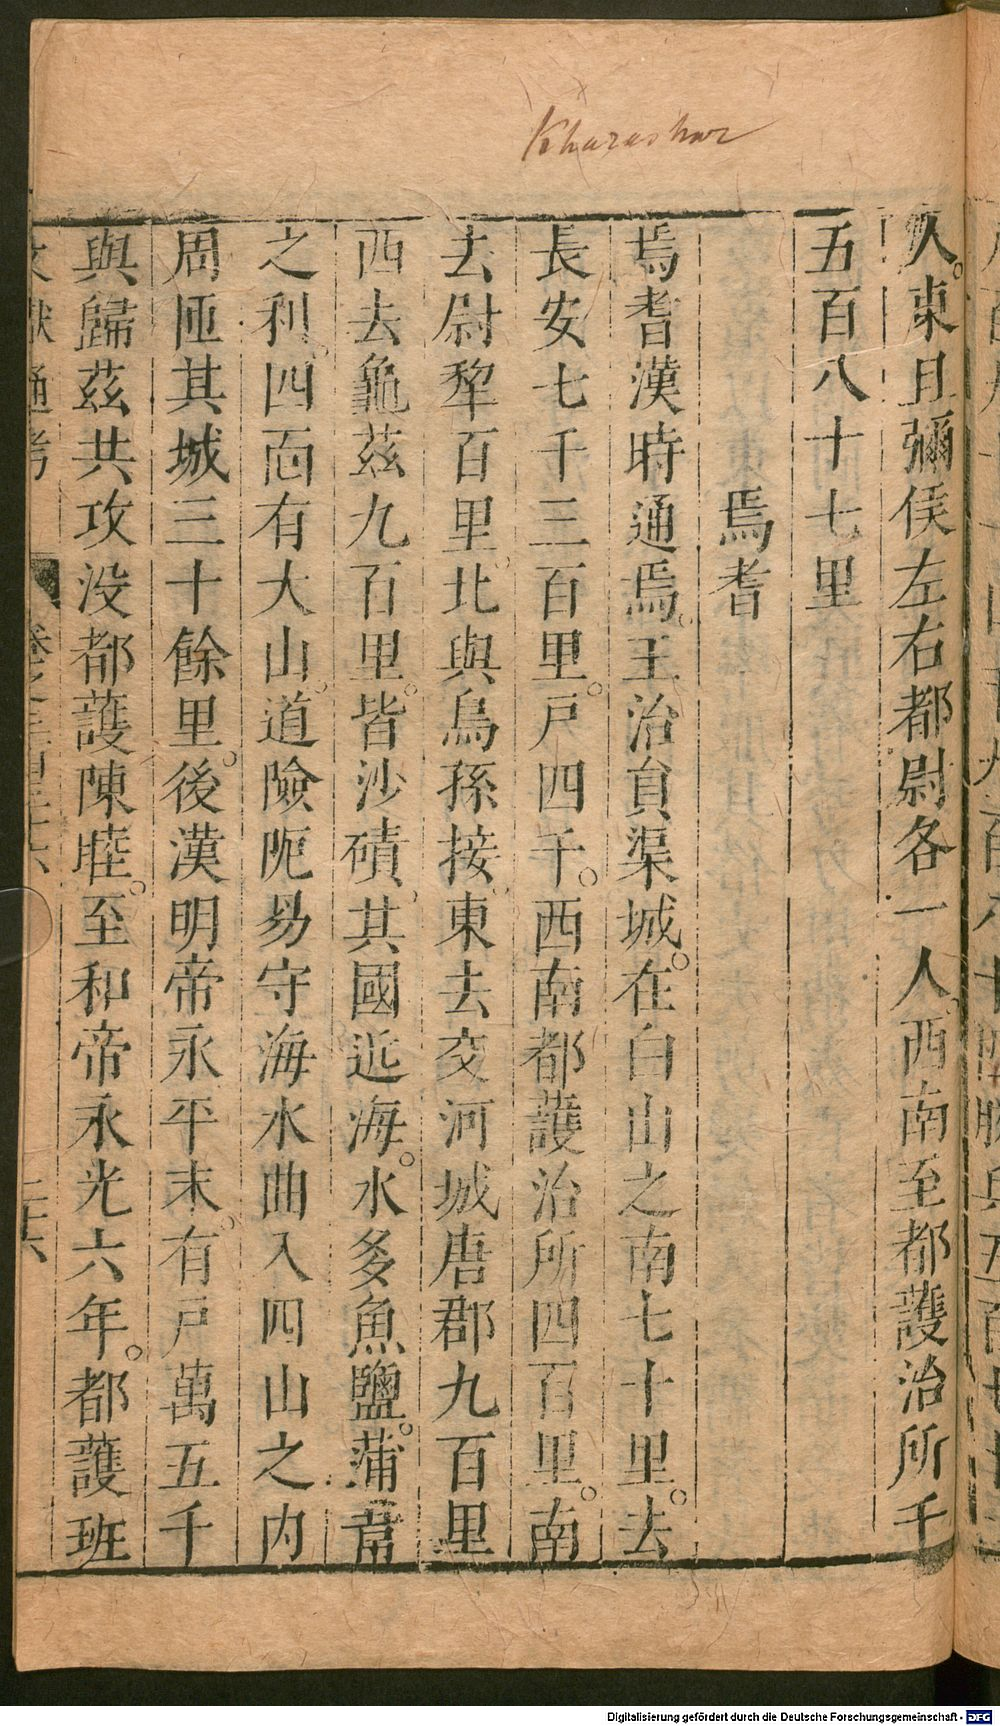 Kharashar
人東且彌侯左右都尉各一人西南至都護治所千
五百八十七里
焉耆
焉耆漢時通焉王治負渠城在白山之南七十里去
長安七千三百里戸四千西南都護治所四百里南
去尉犂百里北與烏孫接東去交河城唐郡九百里
西去龜茲九百里皆沙磧其國近海水多魚鹽蒲葦
之利四面有大山道險阨易守海水曲入四山之内
周匝其城三十餘里後漢明帝永平末有戸萬五千
與歸茲共攻没都護陳睦至和帝永光六年都護班
文獻通考
Digitalisierung gefördert durch die Deutsche Forschungsgemeinschaft - DFG